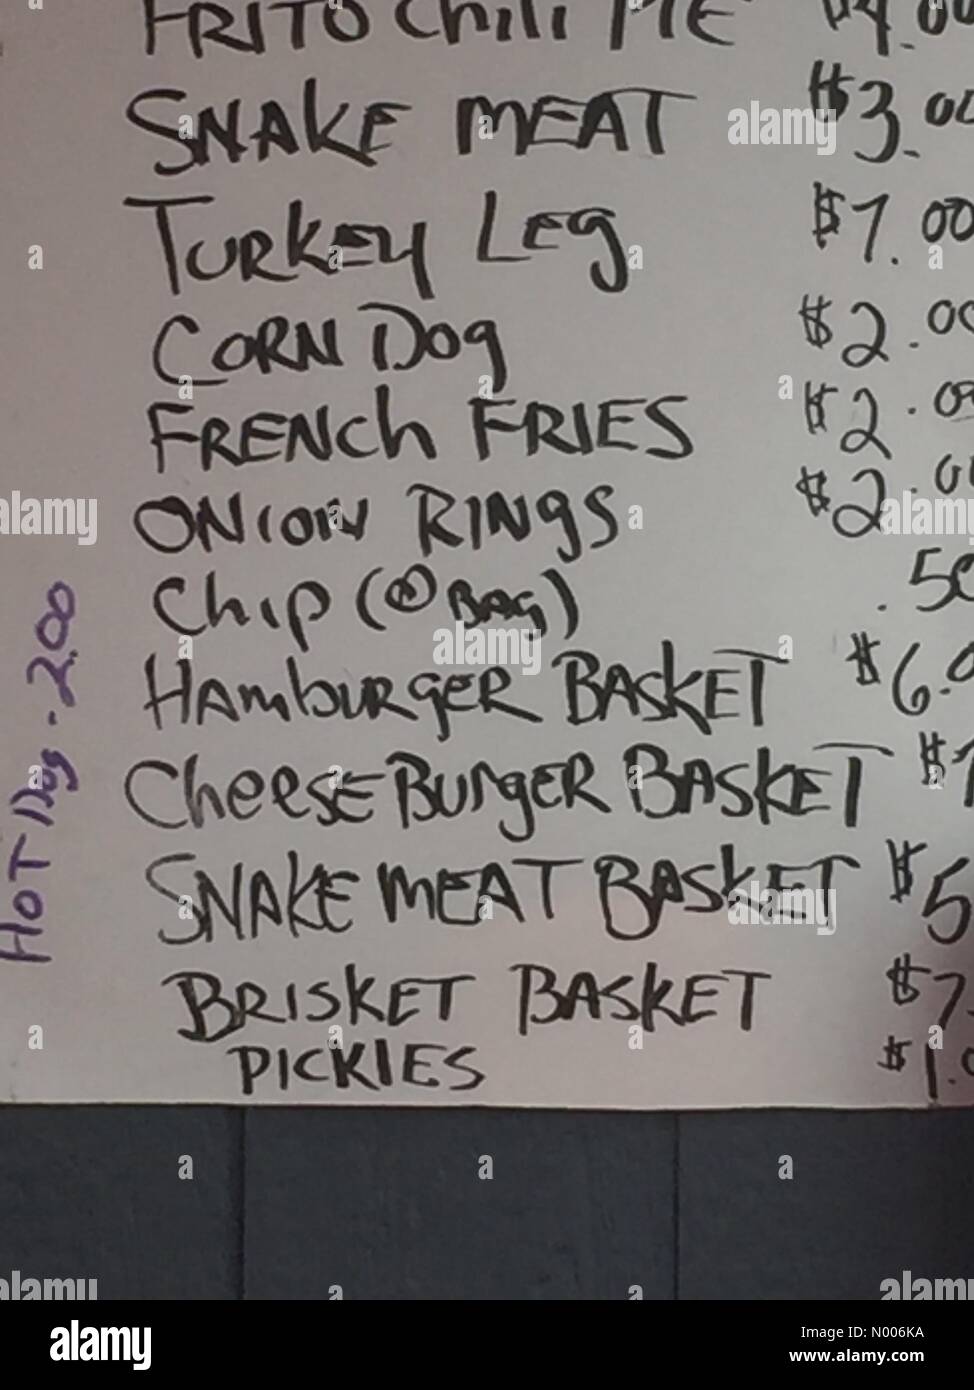 FRITO Chili PIE $4.00
SNAKE MEAT $3.00
TURKEY LEG $7.00
CORN DOG $2.00
FRENCH FRIES $2.00
ONION RINGS $2.00
Chip (@ BAG) .50
HAMBURGER BASKET $6.0
CHEESE BURGER BASKET $7
SNAKE MEAT BASKET $5
BRISKET BASKET $7.
PICKLES $1.0
HOT DOG - 2.00
alamy
Image ID: N006KA
www.alamy.com